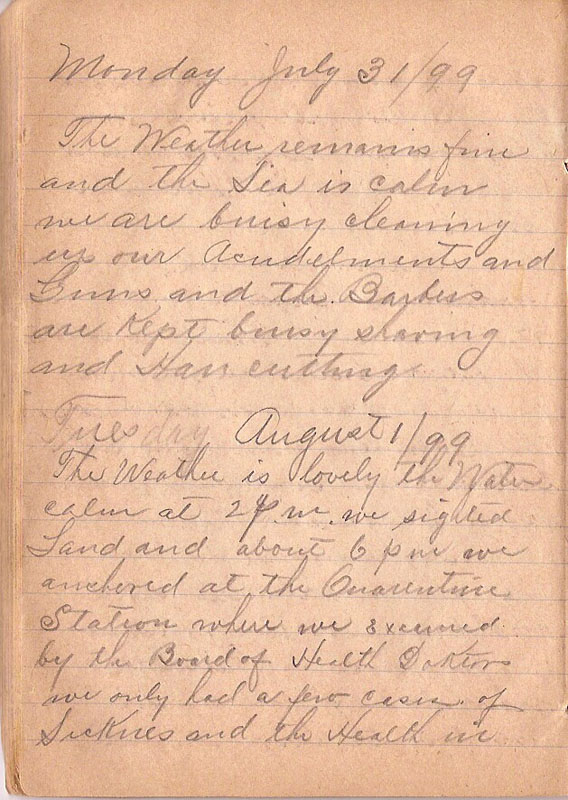 Monday July 31/99
The Weather remains fine
and the Sea is calm
we are buisy cleaning
up our Acudelments and
Guns and the Barbers
are Kept buisy shaving
and Hair cutting
Tuesday August 1/99
The Weather is lovely the Water
calm at 2 p.m. we sighted
Land and about 6 pm we
anchored at the Quarentine
Station where we Examed
by the Board of Health Doktors
we only had a few cases of
Sicknes and the Health in